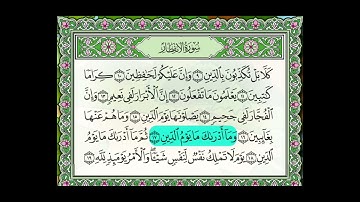 سُورَةُ الِانفِطَارِ
كَلَّا بَلْ تُكَذِّبُونَ بِالدِّينِ ۝٩ وَإِنَّ عَلَيْكُمْ لَحَافِظِينَ ۝١٠ كِرَامًا
كَاتِبِينَ ۝١١ يَعْلَمُونَ مَا تَفْعَلُونَ ۝١٢ إِنَّ الْأَبْرَارَ لَفِي نَعِيمٍ ۝١٣ وَإِنَّ
الْفُجَّارَ لَفِي جَحِيمٍ ۝١٤ يَصْلَوْنَهَا يَوْمَ الدِّينِ ۝١٥ وَمَا هُمْ عَنْهَا
بِغَائِبِينَ ۝١٦ وَمَا أَدْرَاكَ مَا يَوْمُ الدِّينِ ۝١٧ ثُمَّ مَا أَدْرَاكَ مَا يَوْمُ
الدِّينِ ۝١٨ يَوْمَ لَا تَمْلِكُ نَفْسٌ لِنَفْسٍ شَيْئًا وَالْأَمْرُ يَوْمَئِذٍ لِلَّهِ ۝١٩